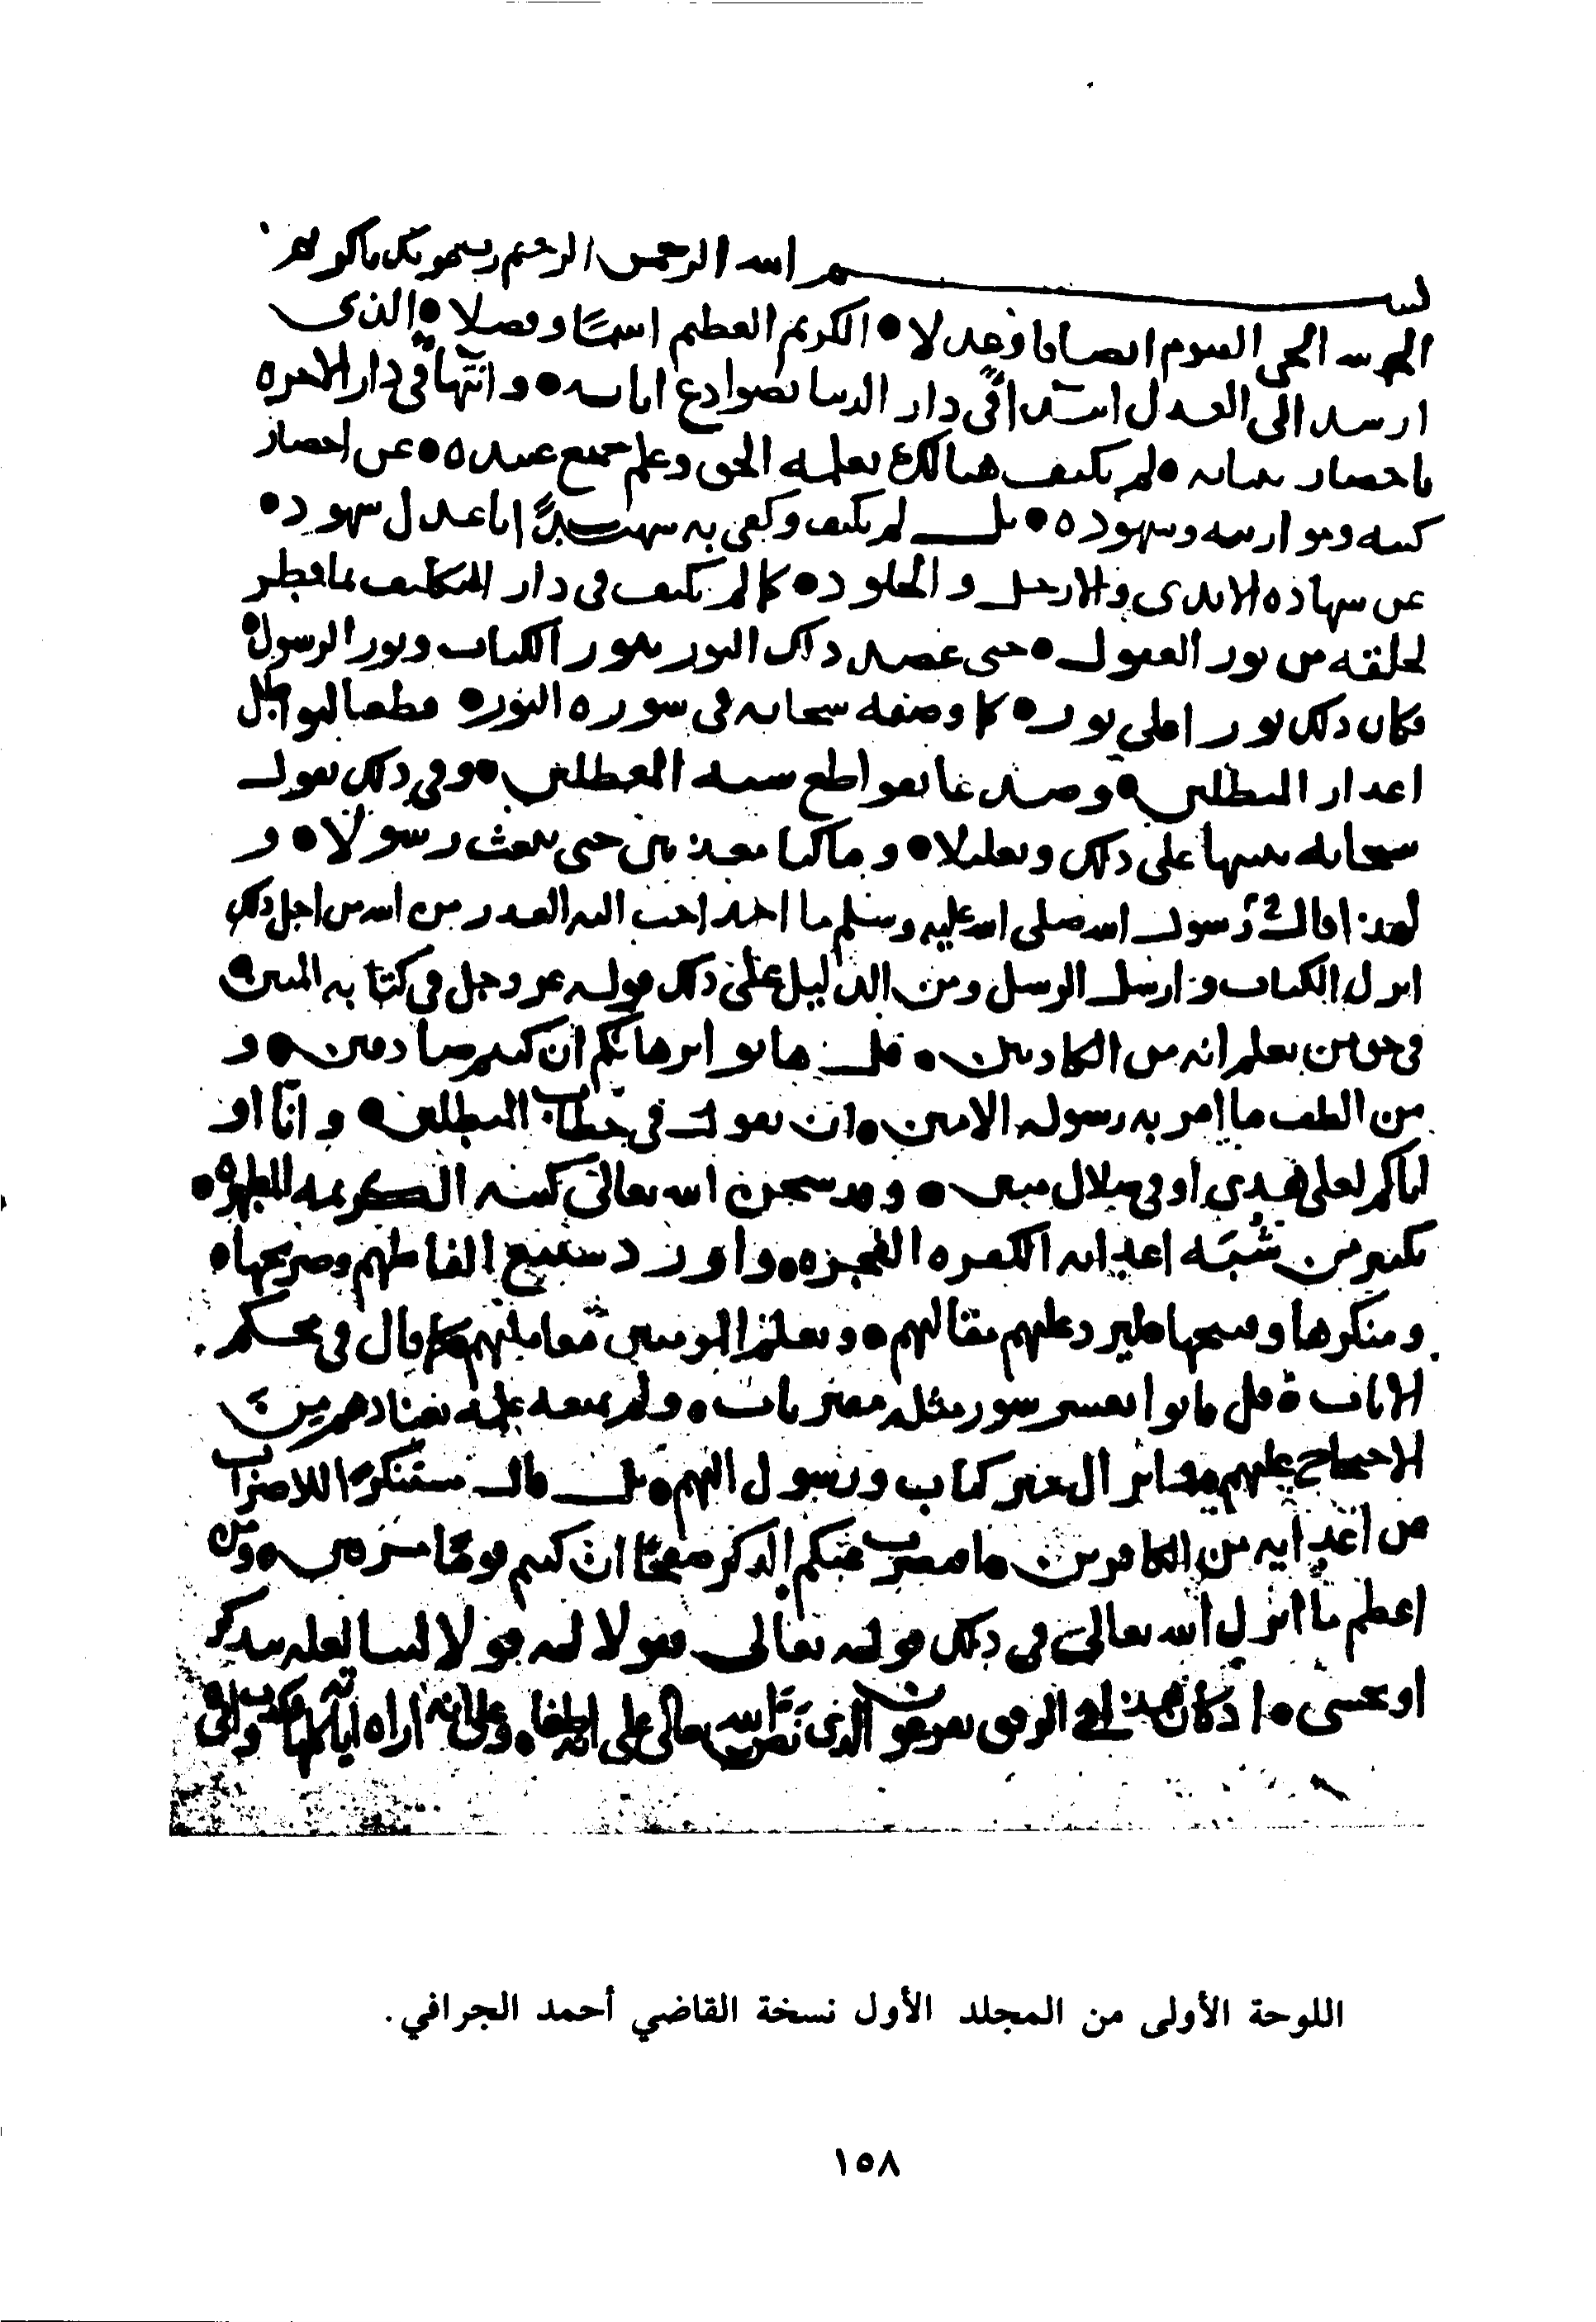 بسم الله الرحمن الرحيم وبه عونك يا كريم
الحمد لله الحي القيوم انصافا وعدلا • الكريم العظيم اسما وفضلا • الذي
ارسد الى العدل ابتداءً في دار الدنيا بصوادع اياته • وانتهاءً في دار الاخره
باحضار بيناته • ولم يكتف هنالك بعلمه الحق وعلم جميع عبيده • عن احضار
كتبه وموازينه وشهوده • بل لم يكتف وكفى به شهيداً اياعدل شهود •
عن شهاده الايدي والارجل والجلود • كما لم يكتف في دار التكليف بما فطر
لخلقه من نور العقول • حتى عضد ذلك النور بنور الكتاب ونور الرسول •
فكان ذلك نورا على نور • كما وصفه سبحانه في سوره النور • قطعا لبواطل
اعذار المبطلين • وصدعا بقواطع سبه المعطلين • وفي ذلك يقول
سبحانه منبها على ذلك وتعليلا • وما كنا معذبين حتى نبعث رسولا • و
لهذا قال رسول الله صلى الله عليه وسلم ما احد احب اليه العذر من الله من اجل ذلك
انزل الكتاب وارسل الرسل ومن الدليل على ذلك قوله عز وجل في كتابه المبين •
في حق من يعلم انه من الكاذبين • قل هاتوا برهانكم ان كنتم صادقين • و
من الطف ما امر به رسوله الامين • ان يقول في خطاب المبطلين • وانا او
اياكم لعلى هدى او في ضلال مبين • وقد شحن الله تعالى كتبه الكريمه المطهره •
بكثير من شبه اعدائه الكفره الفجره • واورد شنيع الفاظهم وصريحها •
ومنكرها وقبيحها ليرد عليهم مقالهم • وتعلم المومنين معاملتهم كما قال في محكم
الايات • قل فاتوا بعشر سور مثله مفتريات • ولم يمنعه علمه بعنادهم من
الاحتجاج عليهم بانزال خير كتاب ورسول اليهم • بل قال مستنكراً للاضراب
عن اعدايه من الكافرين • افنضرب عنكم الذكر صفحًا ان كنتم قومًا مسرفين • ومن
اعظم ما انزل الله تعالى في ذلك قوله تعالى فقولا له قولا لينا لعله يتذكر
او يخشى • اذ كان هذا في الرفق بفرعون الذي نص الله تعالى على انه طغى • وعلى انه اراه اياته كلها فكذب وابى
اللوحة الأولى من المجلد الأول نسخة القاضي أحمد الجرافي.
١٥٨